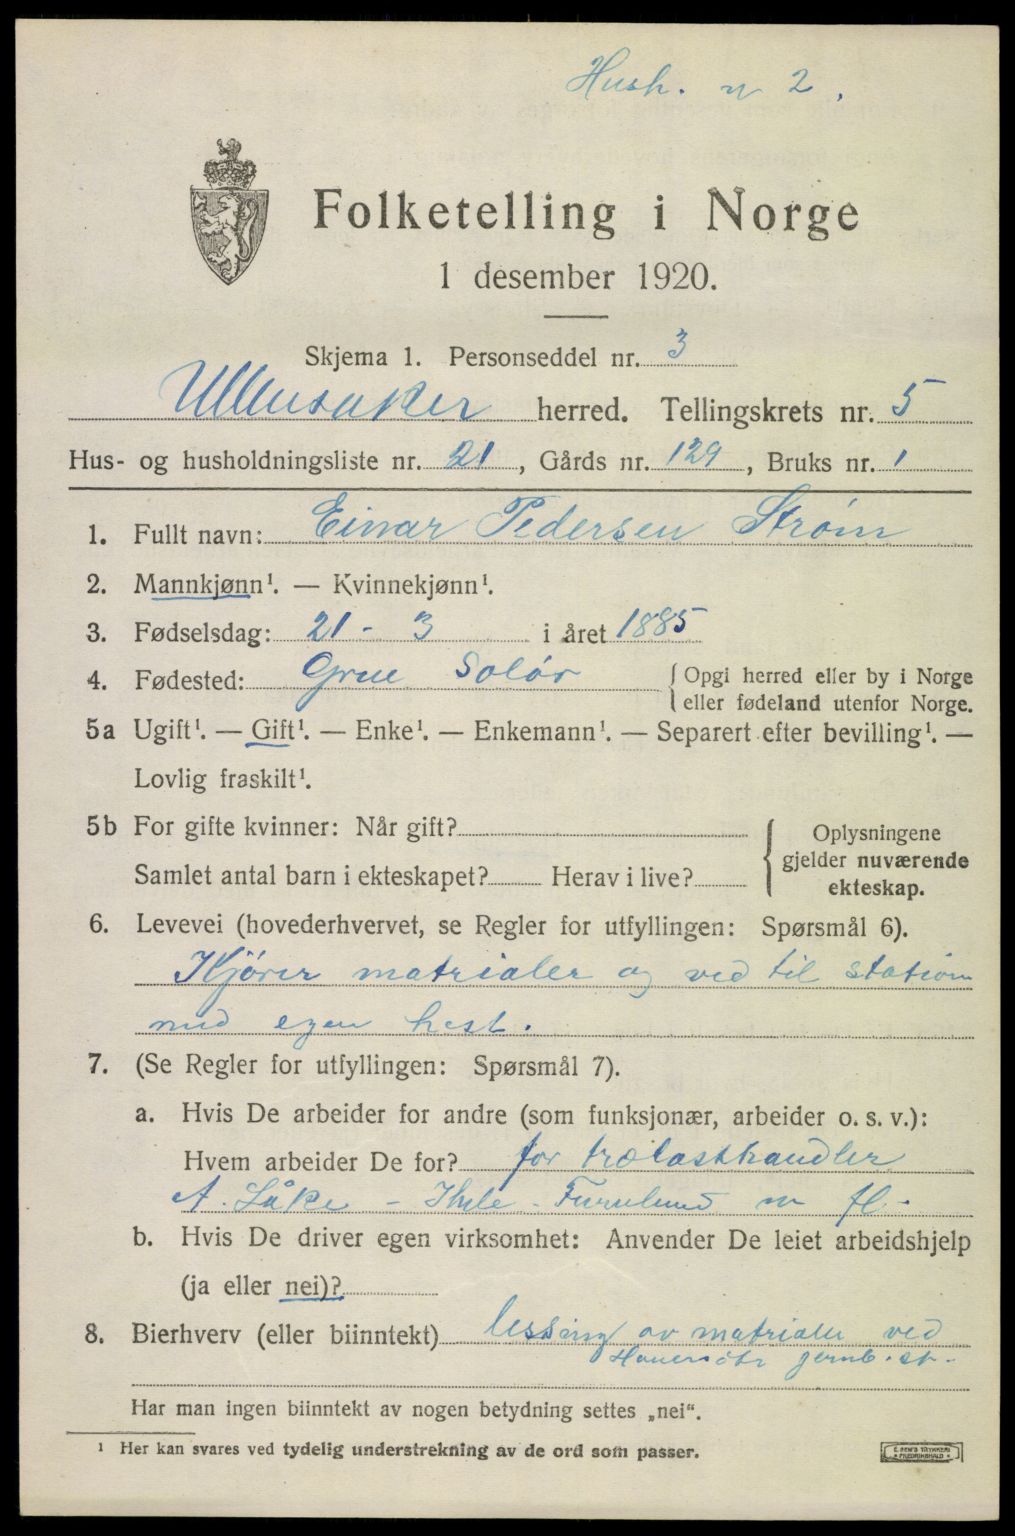 Hush. n 2.
Folketelling i Norge
1 desember 1920.
Skjema 1. Personseddel nr. 3
Ullensaker herred. Tellingskrets nr. 5
Hus- og husholdningsliste nr. 21, Gårds nr. 129, Bruks nr. 1
1. Fullt navn: Einar Pedersen Strøm
2. Mannkjønn¹. — Kvinnekjønn¹.
3. Fødselsdag: 21 - 3 i året 1885
4. Fødested: Grue Solør { Opgi herred eller by i Norge
eller fødeland utenfor Norge.
5a Ugift¹. — Gift¹. — Enke¹. — Enkemann¹. — Separert efter bevilling¹. —
Lovlig fraskilt¹.
5b For gifte kvinner: Når gift?
Samlet antal barn i ekteskapet? Herav i live?
Oplysningene
gjelder nuværende
ekteskap.
6. Levevei (hovederhvervet, se Regler for utfyllingen: Spørsmål 6).
Kjører matrialer og ved til station
med egen hest.
7. (Se Regler for utfyllingen: Spørsmål 7).
a. Hvis De arbeider for andre (som funksjonær, arbeider o. s. v.):
Hvem arbeider De for? for trælasthandler
A. Låke - Ihle - Furulund m fl.
b. Hvis De driver egen virksomhet: Anvender De leiet arbeidshjelp
(ja eller nei)?
8. Bierhverv (eller biinntekt) lessing av matrialer ved
jernb. st.
Har man ingen biinntekt av nogen betydning settes „nei“.
¹ Her kan svares ved tydelig understrekning av de ord som passer.